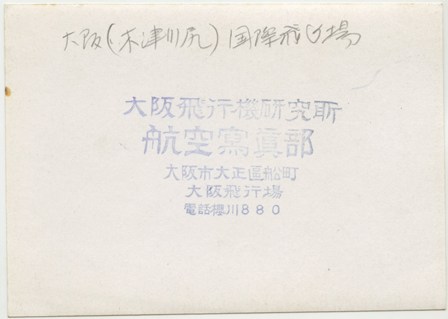 大阪(木津川尻)国際飛行場
大阪飛行機研究所
航空寫眞部
大阪市大正區船町
大阪飛行場
電話櫻川880